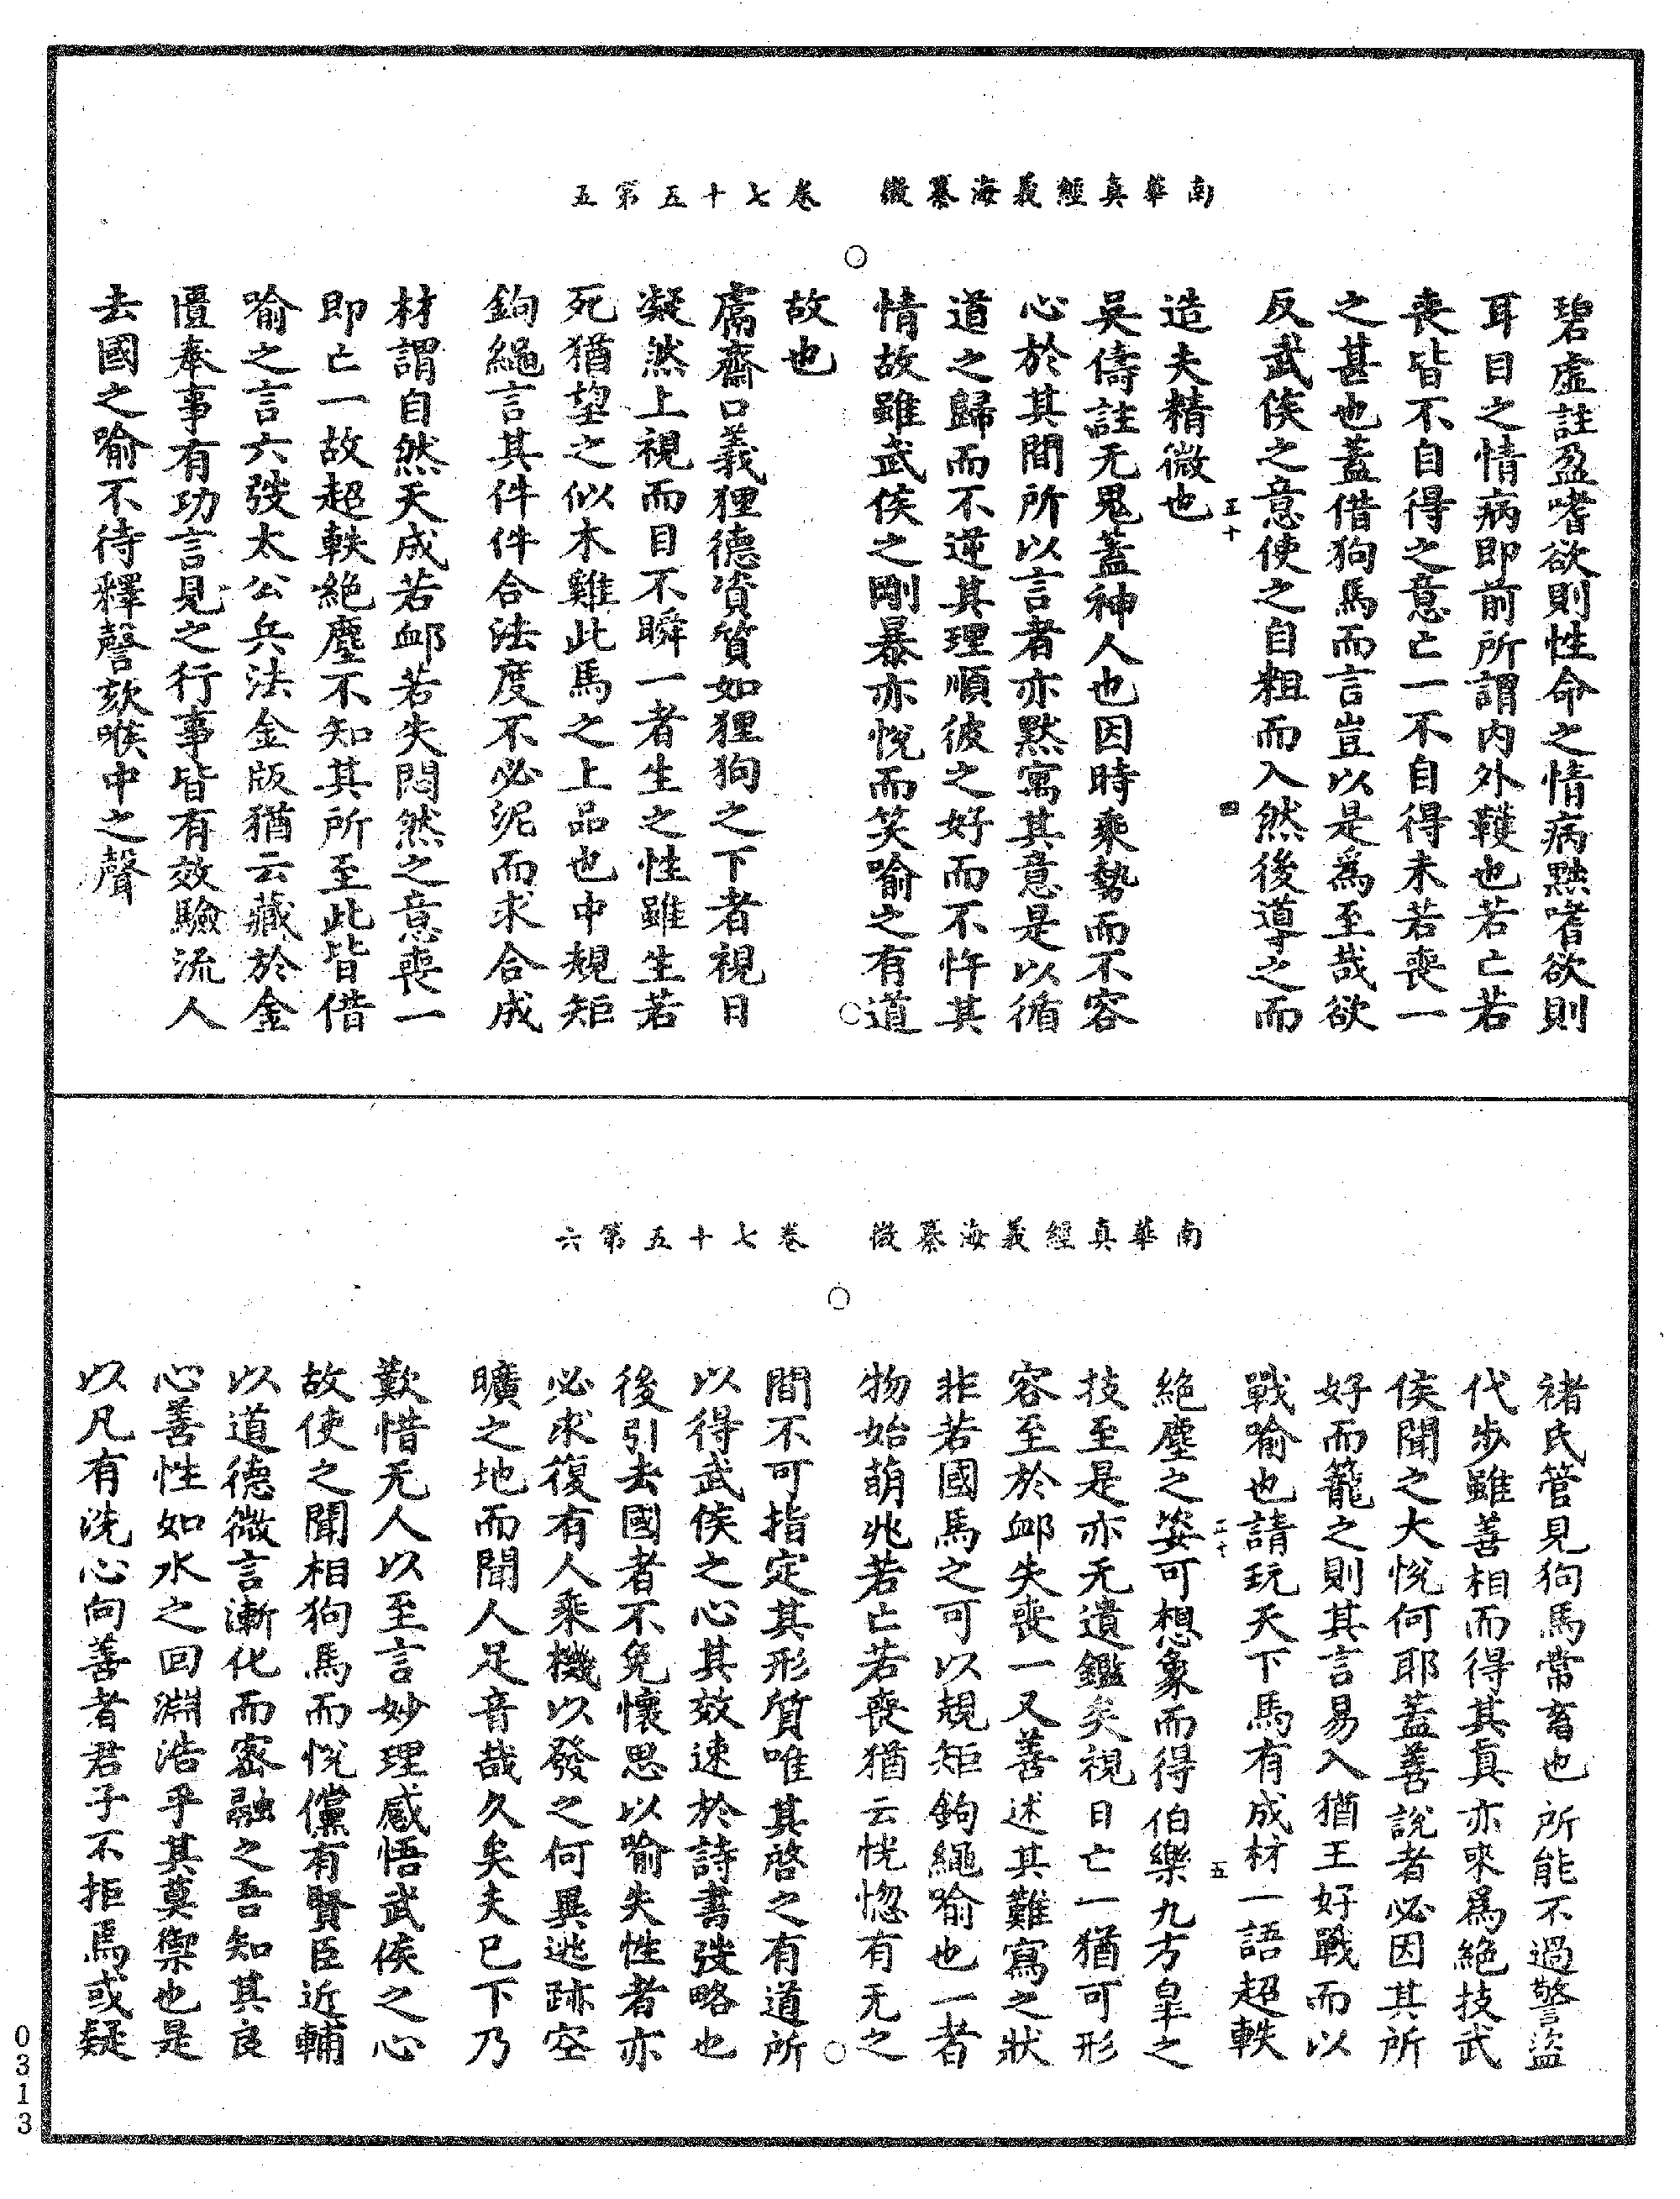 南華真經義海纂微　卷七十五第五
碧虛註盈嗜欲則性命之情病黜嗜欲則
耳目之情病即前所謂內外韄也若亡若
喪皆不自得之意亡一不自得未若喪一
之甚也蓋借狗馬而言豈以是爲至哉欲
反武侯之意使之自粗而入然後導之而
造夫精微也
吳儔註无鬼蓋神人也因時乘勢而不容
心於其間所以言者亦黙寓其意是以循
道之歸而不逆其理順彼之好而不忤其
情故雖武侯之剛暴亦悅而笑喻之有道
故也
鬳齋口義狸德資質如狸狗之下者視日
凝然上視而目不瞬一者生之性雖生若
死猶望之似木雞此馬之上品也中規矩
鉤繩言其件件合法度不必泥而求合成
材謂自然天成若卹若失悶然之意喪一
即亡一故超軼絕塵不知其所至此皆借
喻之言六弢太公兵法金版猶云藏於金
匱奉事有功言見之行事皆有效驗流人
去國之喻不待釋謦欬喉中之聲
南華真經義海纂微　卷七十五第六
褚氏管見狗馬常畜也所能不過警盜
代步雖善相而得其真亦來爲絕技武
侯聞之大悅何耶蓋善說者必因其所
好而籠之則其言易入猶王好戰而以
戰喻也請玩天下馬有成材一語超軼
絕塵之姿可想象而得伯樂九方皐之
技至是亦无遺鑑矣視日亡一猶可形
容至於卹失喪一又善述其難寫之狀
非若國馬之可以規矩鉤繩喻也一者
物始萌兆若亡若喪猶云恍惚有无之
間不可指定其形質唯其啓之有道所
以得武侯之心其效速於詩書弢略也
後引去國者不免懷思以喻失性者亦
必求復有人乘機以發之何異逃跡空
曠之地而聞人足音哉久矣夫已下乃
歎惜无人以至言妙理感悟武侯之心
故使之聞相狗馬而悅儻有賢臣近輔
以道德微言漸化而密融之吾知其良
心善性如水之回淵浩乎其莫禦也是
以凡有洗心向善者君子不拒焉或疑
0313